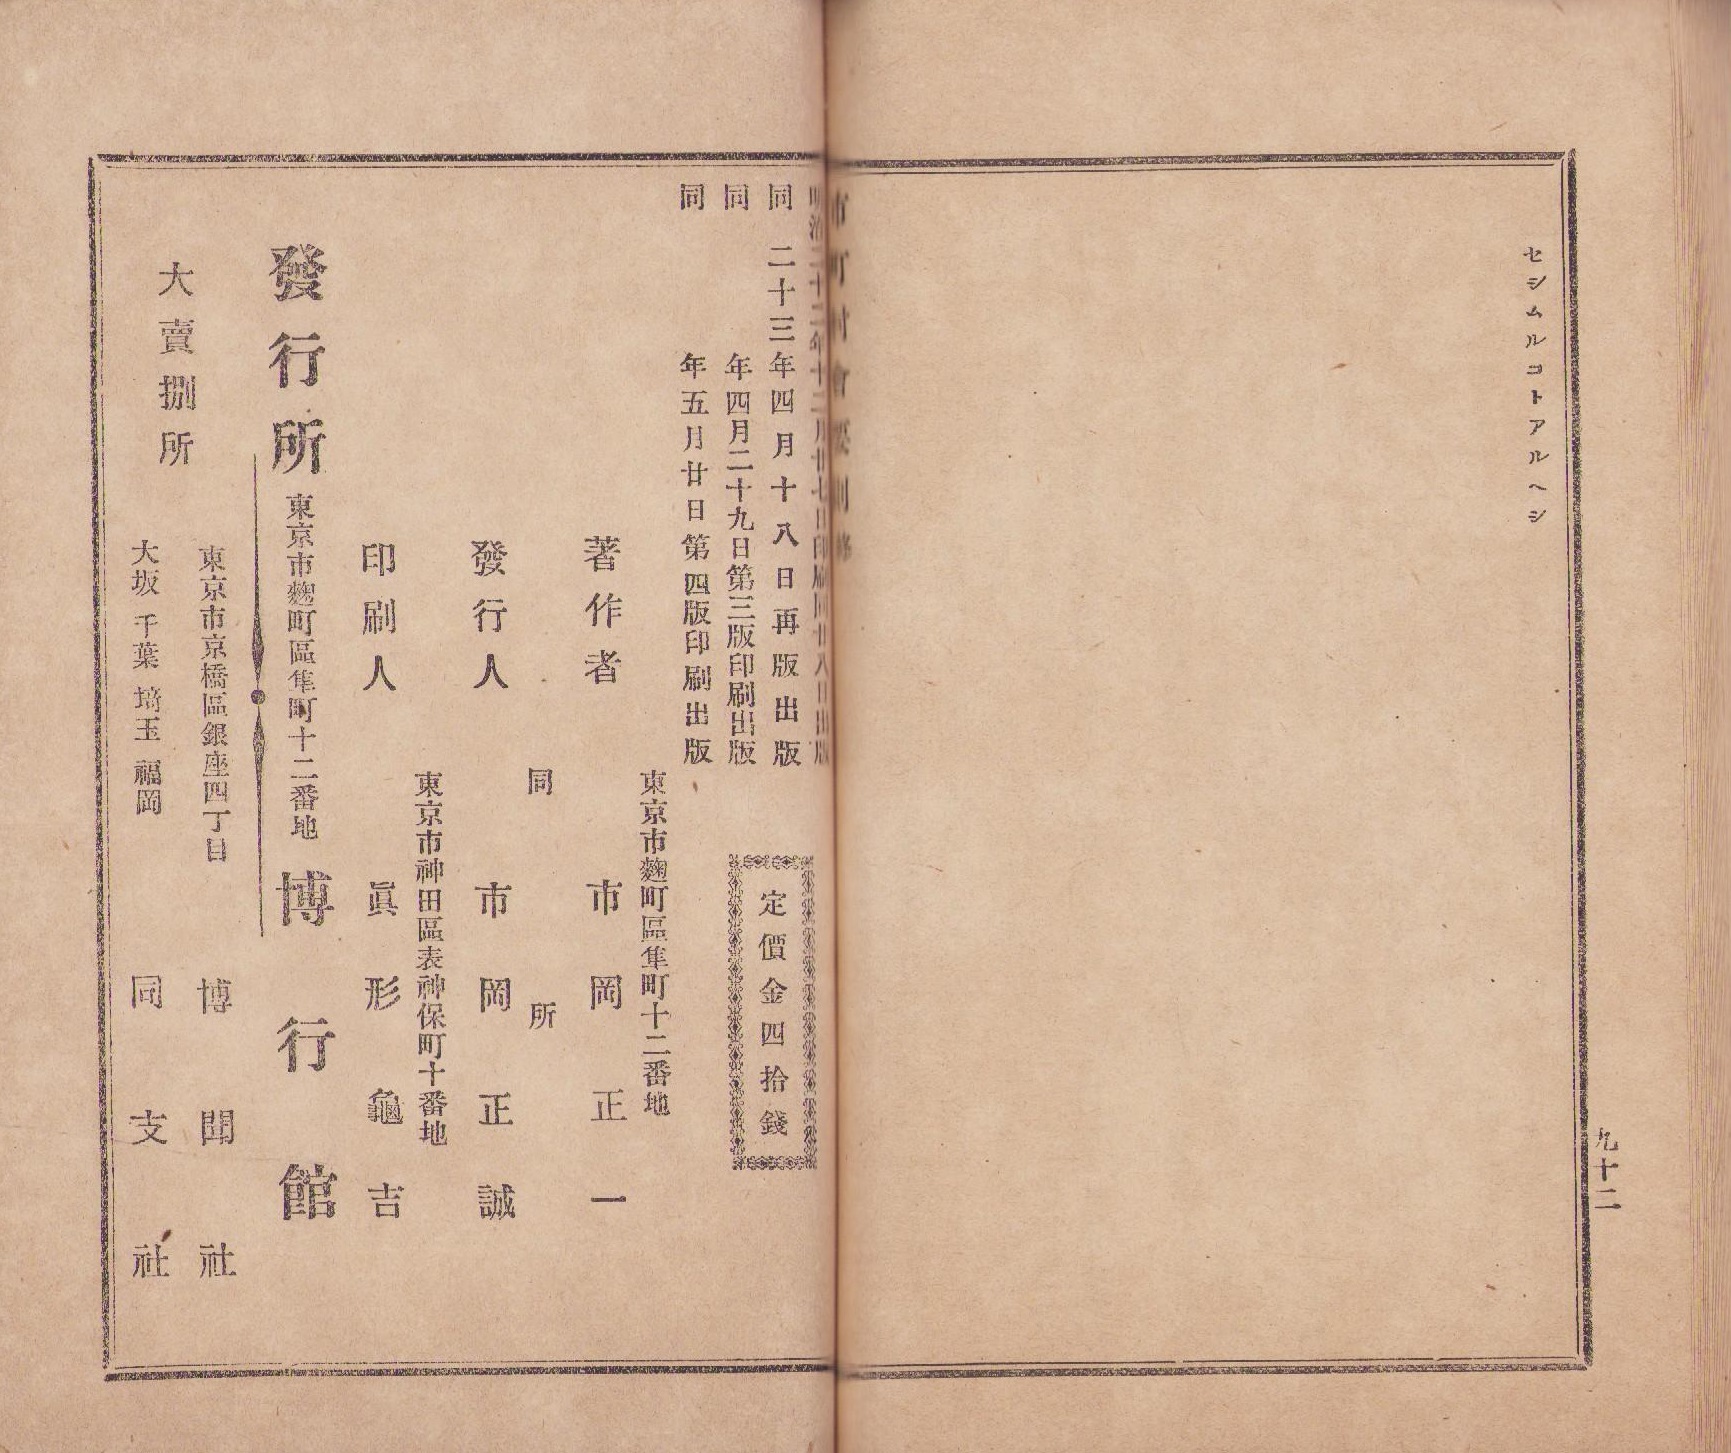 セシムルコトアルヘシ
九十二
明治二十二年十二月廿七日印刷同廿八日出版
同 二十三年四月十八日再版出版
同 年四月二十九日第三版印刷出版
同 年五月廿日第四版印刷出版
定價金四拾錢
東京市麴町區隼町十二番地
著作者 市岡正一
同所
發行人 市岡正誠
東京市神田區表神保町十番地
印刷人 眞形龜吉
發行所 東京市麴町區隼町十二番地 博行館
大賣捌所
東京市京橋區銀座四丁目 博聞社
大坂 千葉 埼玉 福岡 同支社